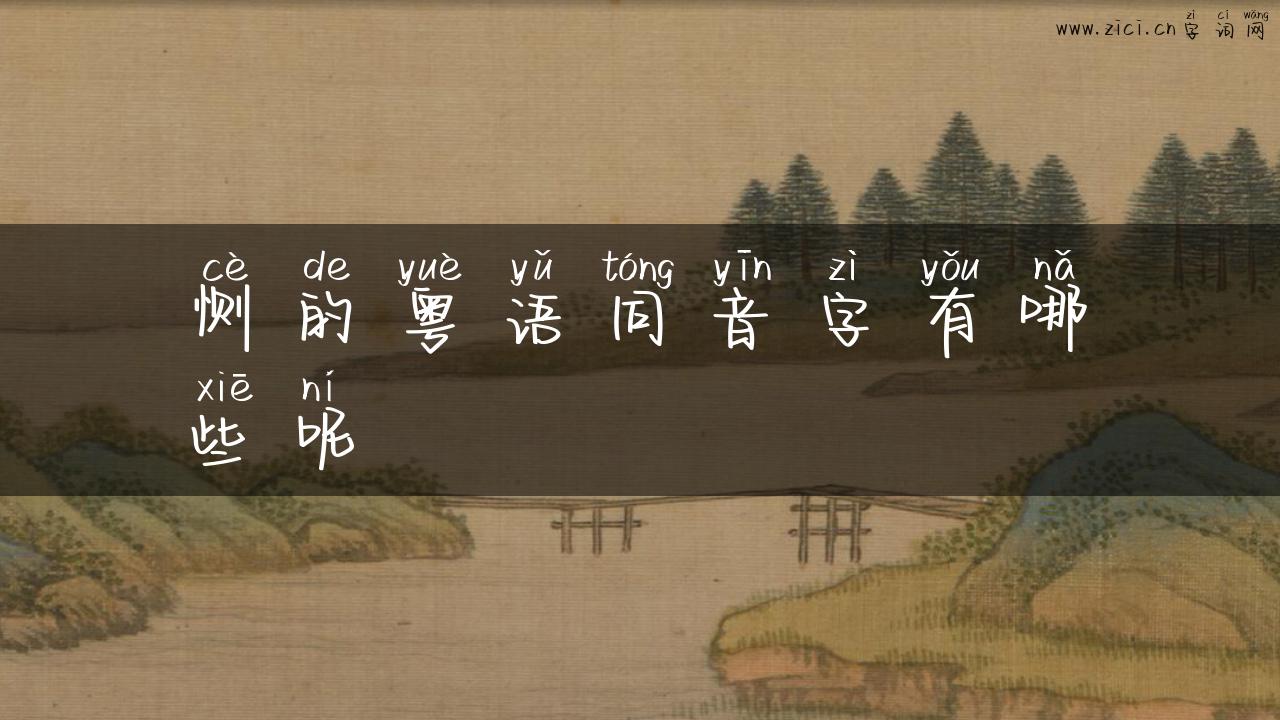 zì cí wǎng
www.zici.cn 字 词 网
cè de yuè yǔ tóng yīn zì yǒu nǎ
恻 的 粤 语 同 音 字 有 哪
xiē ní
些 呢